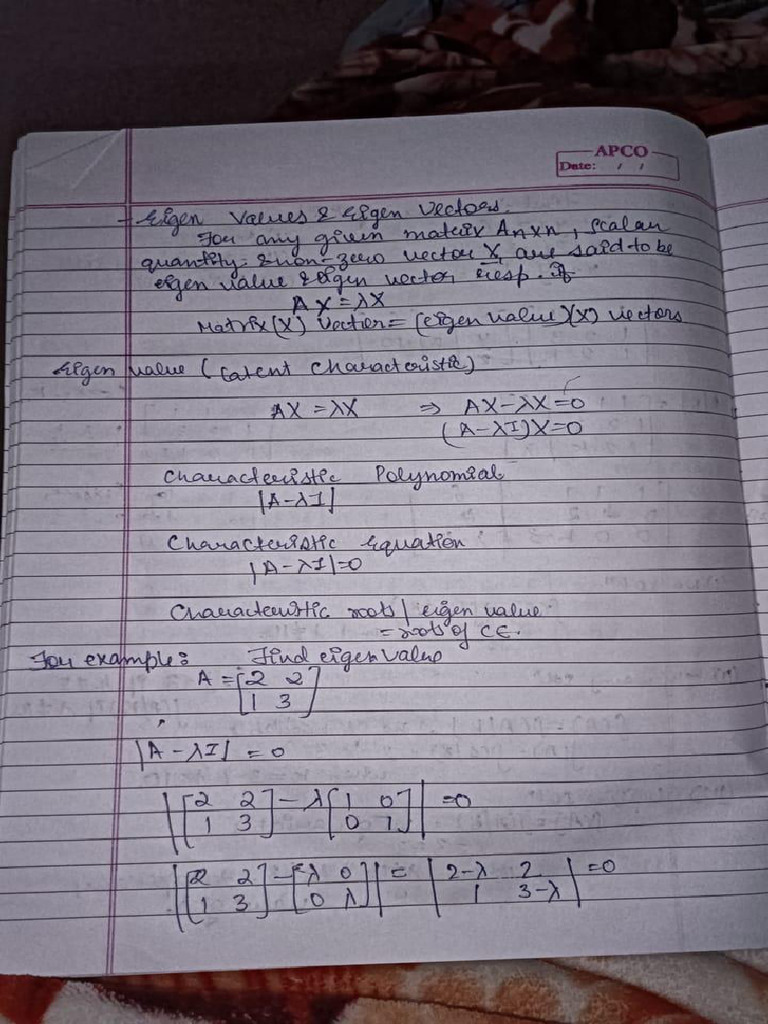 APCO
Date: / /
Eigen Values & Eigen Vectors.
For any given matrix Anxn, scalar
quantity & non-zero vector X, are said to be
eigen value & eigen vector resp. if
AX = λX
Matrix (X) Vector = (eigen value)(X) vectors
Eigen value (Latent Characteristic)
AX = λX ⇒ AX-λX=0
(A-λI)X=0
Characteristic Polynomial
|A-λI|
Characteristic Equation:
|A-λI|=0
Characteristic roots | eigen value
= roots of CE.
For example: Find eigen value
A = [2 2
1 3]
|A - λI| = 0
|[2 2 - λ [1 0 =0
1 3] 0 1]|
|[2 2 - [λ 0 = |2-λ 2 =0
1 3] 0 λ]| 1 3-λ|